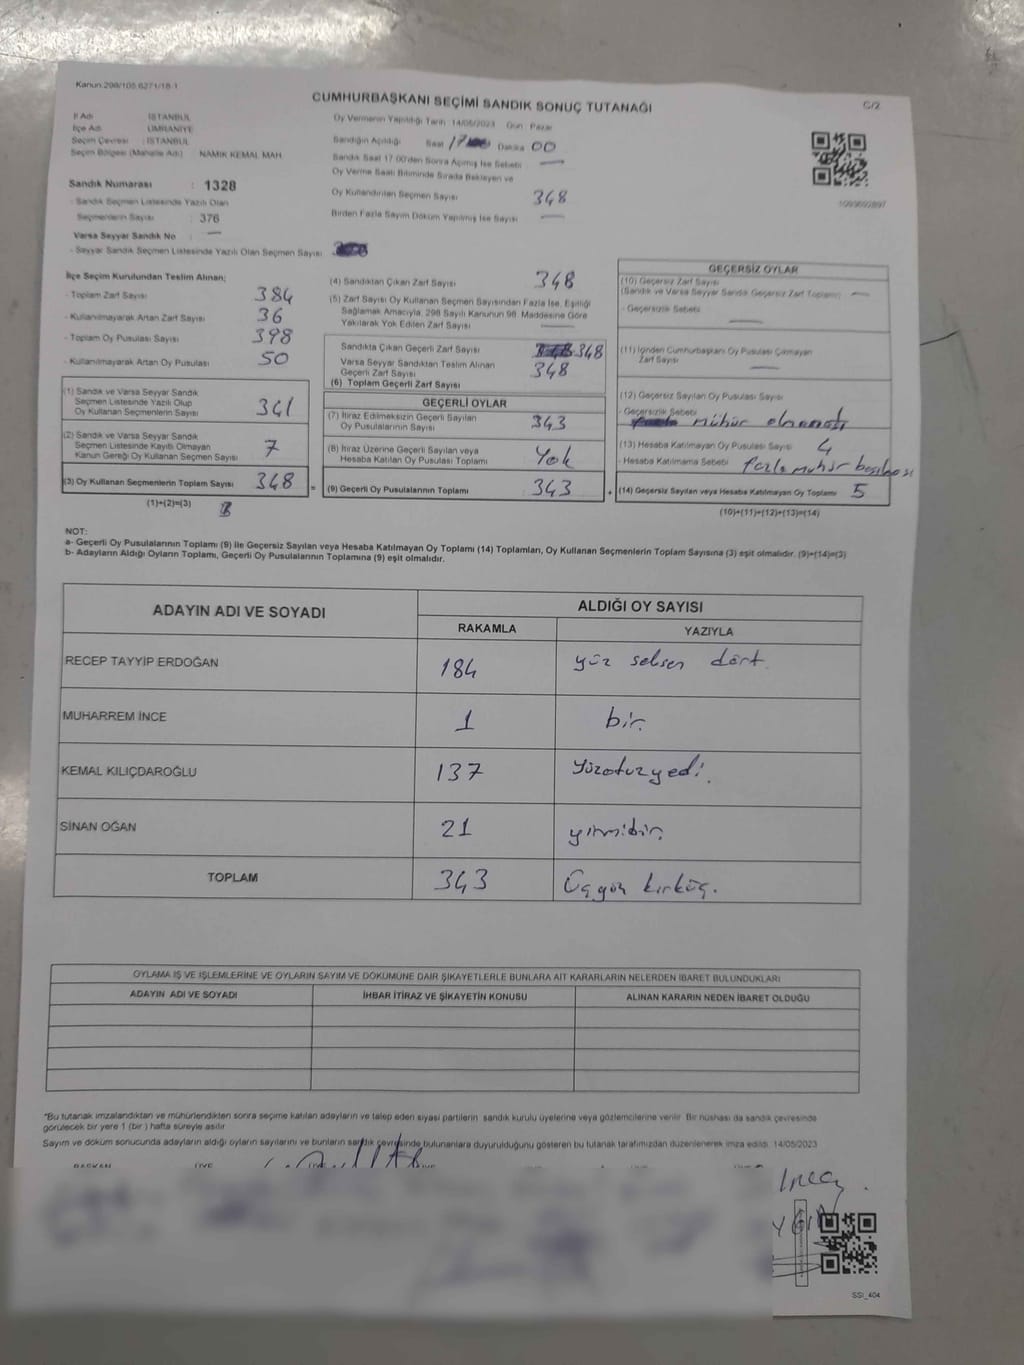 Kanun.298/105.6271/18-1
CUMHURBAŞKANI SEÇİMİ SANDIK SONUÇ TUTANAĞI
C/2
İl Adı : İSTANBUL
İlçe Adı : ÜMRANİYE
Seçim Çevresi : İSTANBUL
Seçim Bölgesi (Mahalle Adı) : NAMIK KEMAL MAH.
Sandık Numarası : 1328
- Sandık Seçmen Listesinde Yazılı Olan
Seçmenlerin Sayısı : 376
Varsa Seyyar Sandık No : —
- Seyyar Sandık Seçmen Listesinde Yazılı Olan Seçmen Sayısı :
Oy Vermenin Yapıldığı Tarih : 14/05/2023 Gün : Pazar
Sandığın Açıldığı Saat 17 Dakika 00
Sandık Saat 17.00'den Sonra Açılmış İse Sebebi : —
Oy Verme Saati Bitiminde Sırada Bekleyen ve
Oy Kullandırılan Seçmen Sayısı 348
Birden Fazla Sayım Döküm Yapılmış İse Sayısı —
1099692897
İlçe Seçim Kurulundan Teslim Alınan;
- Toplam Zarf Sayısı 384
- Kullanılmayarak Artan Zarf Sayısı 36
- Toplam Oy Pusulası Sayısı 398
- Kullanılmayarak Artan Oy Pusulası 50
(1) Sandık ve Varsa Seyyar Sandık
Seçmen Listesinde Yazılı Olup
Oy Kullanan Seçmenlerin Sayısı 341
(2) Sandık ve Varsa Seyyar Sandık
Seçmen Listesinde Kayıtlı Olmayan
Kanun Gereği Oy Kullanan Seçmen Sayısı 7
(3) Oy Kullanan Seçmenlerin Toplam Sayısı 348 =
(1)+(2)=(3)
(4) Sandıktan Çıkan Zarf Sayısı 348
(5) Zarf Sayısı Oy Kullanan Seçmen Sayısından Fazla İse, Eşitliği
Sağlamak Amacıyla, 298 Sayılı Kanunun 98. Maddesine Göre
Yakılarak Yok Edilen Zarf Sayısı —
Sandıkta Çıkan Geçerli Zarf Sayısı 348
Varsa Seyyar Sandıktan Teslim Alınan
Geçerli Zarf Sayısı 348
(6) Toplam Geçerli Zarf Sayısı
GEÇERLİ OYLAR
(7) İtiraz Edilmeksizin Geçerli Sayılan
Oy Pusulalarının Sayısı 343
(8) İtiraz Üzerine Geçerli Sayılan veya
Hesaba Katılan Oy Pusulası Toplamı Yok
(9) Geçerli Oy Pusulalarının Toplamı 343 +
GEÇERSİZ OYLAR
(10) Geçersiz Zarf Sayısı
(Sandık ve Varsa Seyyar Sandık Geçersiz Zarf Toplamı) —
- Geçersizlik Sebebi : —
(11) İçinden Cumhurbaşkanı Oy Pusulası Çıkmayan
Zarf Sayısı —
(12) Geçersiz Sayılan Oy Pusulası Sayısı
- Geçersizlik Sebebi : mühür olmaması
(13) Hesaba Katılmayan Oy Pusulası Sayısı 4
- Hesaba Katılmama Sebebi : fazla mühür basılması
(14) Geçersiz Sayılan veya Hesaba Katılmayan Oy Toplamı 5
(10)+(11)+(12)+(13)=(14)
NOT:
a- Geçerli Oy Pusulalarının Toplamı (9) ile Geçersiz Sayılan veya Hesaba Katılmayan Oy Toplamı (14) Toplamları, Oy Kullanan Seçmenlerin Toplam Sayısına (3) eşit olmalıdır. (9)+(14)=(3)
b- Adayların Aldığı Oyların Toplamı, Geçerli Oy Pusulalarının Toplamına (9) eşit olmalıdır.
ADAYIN ADI VE SOYADI
ALDIĞI OY SAYISI
RAKAMLA YAZIYLA
RECEP TAYYİP ERDOĞAN 184 yüz seksen dört
MUHARREM İNCE 1 bir.
KEMAL KILIÇDAROĞLU 137 Yüzotuzyedi.
SİNAN OĞAN 21 yirmibir.
TOPLAM 343 kırküç.
OYLAMA İŞ VE İŞLEMLERİNE VE OYLARIN SAYIM VE DÖKÜMÜNE DAİR ŞİKAYETLERLE BUNLARA AİT KARARLARIN NELERDEN İBARET BULUNDUKLARI
ADAYIN ADI VE SOYADI İHBAR İTİRAZ VE ŞİKAYETİN KONUSU ALINAN KARARIN NEDEN İBARET OLDUĞU
*Bu tutanak imzalandıktan ve mühürlendikten sonra seçime katılan adayların ve talep eden siyasi partilerin sandık kurulu üyelerine veya gözlemcilerine verilir. Bir nüshası da sandık çevresinde
görülecek bir yere 1 (bir) hafta süreyle asılır.
Sayım ve döküm sonucunda adayların aldığı oyların sayılarını ve bunların sandık çevresinde bulunanlara duyurulduğunu gösteren bu tutanak tarafımızdan düzenlenerek imza edildi. 14/05/2023
BAŞKAN ÜYE
SSI_404